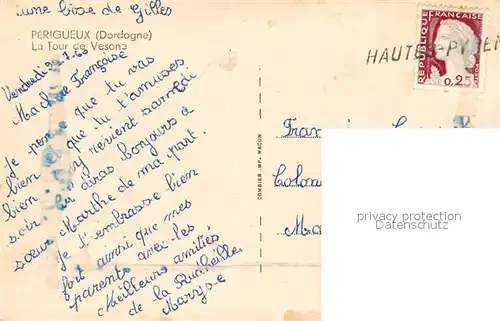 une bise de Gilles
PERIGUEUX (Dordogne)
La Tour de Vesone
Vendredi
Ma chère Françoise
Je pense que tu vas
bien que tu t'amuses
bien revient samedi
soir diras bonjours à
soeur Marthe de ma part.
Je t'embrasse bien
fort ainsi que mes
parents avec les
Meilleurs amitiés
de la
Maryse
COMBIER IMP. MACON
REPUBLIQUE FRANÇAISE
0,25
HAUTES-PYREN
Ma
privacy protection
Datenschutz